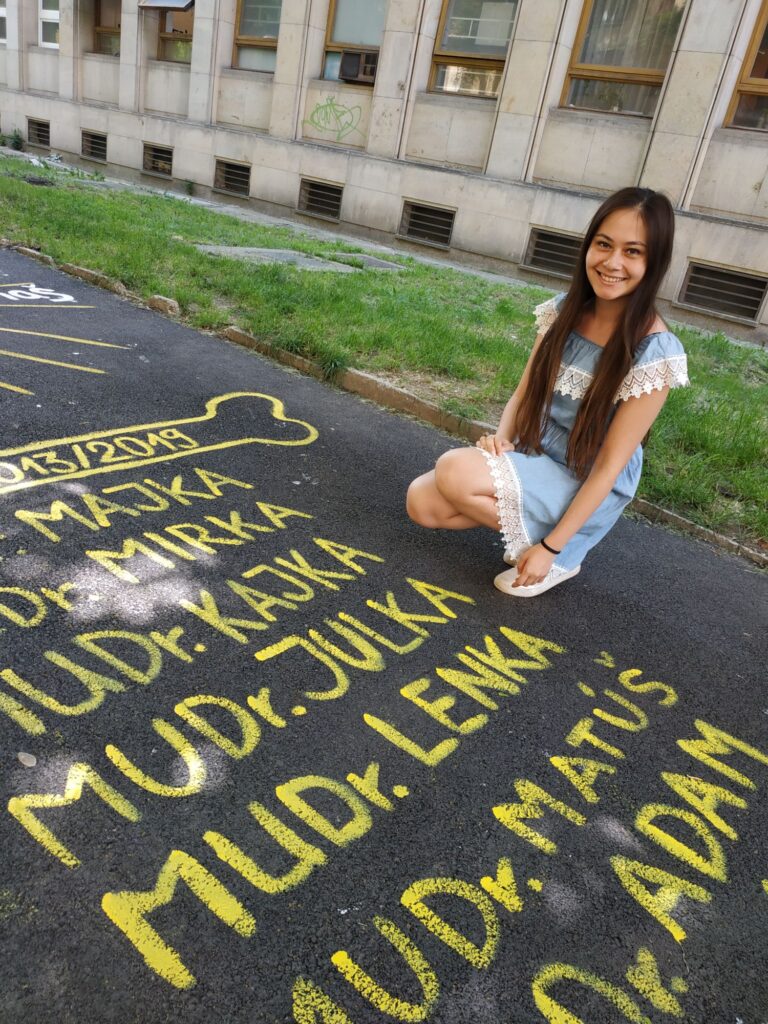 013/2019
MAJKA
Dr. MIRKA
MUDr. KAJKA
MUDr. JULKA
MUDr. LENKA
MUDr. MATÚŠ
Dr. ADAM